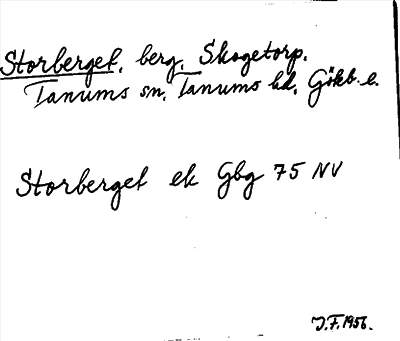 Storberget, berg, Skogetorp.
Tanums sn, Tanums hd, Gökb. l.
Storberget ek Gbg 75 NV
J.F. 1956.